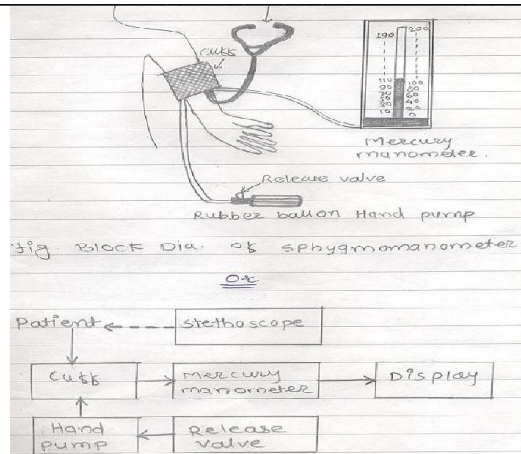 Cuff
190 200
110 100
Mercury
manometer.
Release valve
Rubber ballon Hand pump
fig. Block Dia. of sphygmomanometer
Or
Patient
Stethoscope
Cuff
Mercury
manometer
Display
Hand
pump
Release
valve